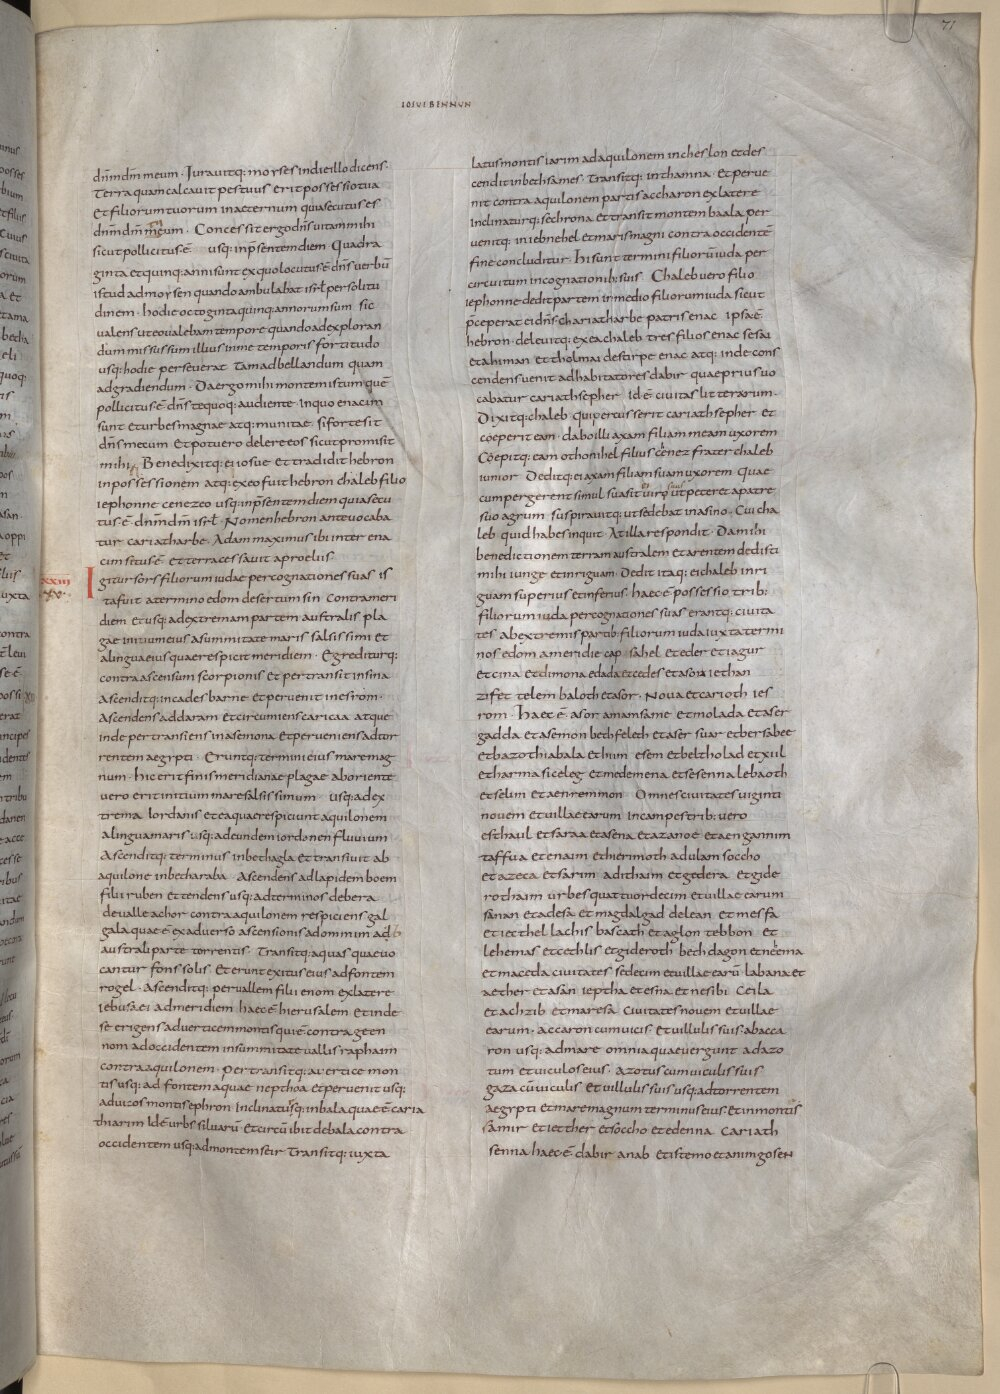 71
IOSUE BENNUN
dnm dm meum. Iuravitq: moyses in die illo dicens.
Terra quam calcavit pes tuus erit possessio tua
Et filiorum tuorum in aeternum quia secutus es
dnm dm meum. Concessit ergo dns vitam mihi
sicut pollicitus ē usq: in psentem diem. Quadra
ginta et quinq: anni sunt ex quo locutus ē dns verbū
istud ad moysen quando ambulabat isrl per solitu
dinem. hodie octoginta quinq: annorum sum sic
valens ut eo valebam tempore quando ad exploran
dum missus sum illius in me temporis fortitudo
usq: hodie perseverat tam ad bellandum quam
ad gradiendum. Da ergo mihi montem istum quē
pollicitus ē dns te quoq: audiente. In quo enacim
sunt et urbes magnae atq: munitae si forte sit
dns mecum Et potuero delere eos sicut promisit
mihi. Benedixitq: ei iosue et tradidit hebron
in possessionem atq: ex eo fuit hebron chaleb filio
iephonne cenezeo usq: in psentem diem quia secu
tus ē dnm dm isrl. Nomen hebron ante vocaba
tur cariatharbe. Adam maximus ibi inter ena
cim situs ē et terra cessavit a proeliis
xxiii
xv.
Igitur sors filiorum iudae per cognationes suas is
ta fuit a termino edom desertum sin contra meri
diem et usq: ad extremam partem australis pla
gae initium eius a summitate maris salsissimi et
a lingua eius quae respicit meridiem. Egrediturq:
contra ascensum scorpionis et pertransit in sina
Ascenditq: in cades barne et pervenit in esrom.
Ascendens addaram et circumiens caricaa atque
inde pertransiens in asemona et perveniens ad tor
rentem aegypti. Eruntq: termini eius mare mag
num. hic erit finis meridianae plagae ab oriente
vero erit initium mare salsissimum usq: ad ex
trema Iordanis et ea quae respiciunt aquilonem
a lingua maris usq: ad eundem iordanen fluvium
Ascenditq: terminus in bethagla et transiuit ab
aquilone in betharaba Ascendens ad lapidem boem
filii ruben et tendens usq: ad terminos debera
de valle achor contra aquilonem respiciens gal
gala quae ē ex adverso ascensionis adommim ab
australi parte torrentis. Transitq: aquas quae vo
cantur fons solis. Et erunt exitus eius ad fontem
rogel. Ascenditq: per vallem filii enom ex latere
iebusaei ad meridiem haec ē hierusalem et inde
se erigens ad verticem montis qui ē contra geen
nom ad occidentem in summitate vallis raphaim
contra aquilonem. Pertransitq: a vertice mon
tis usq: ad fontem aquae nepthoa et pervenit usq:
ad vicos montis ephron Inclinaturq: in bala quae ē caria
thiarim Id ē urbs silvarū Et circūibit de bala contra
occidentem usq: ad montem seir Transitq: iuxta
latus montis iarim ad aquilonem in cheslon et des
cendit in bethsames. Transitq: in thamna. Et perve
nit contra aquilonem partis accharon ex latere
Inclinaturq: sechrona et transit montem baala per
venitq: in iebnehel et maris magni contra occidentē
fine concluditur. hi sunt termini filiorū iuda per
circuitum in cognationib: suis Chaleb vero filio
iephonne dedit partem in medio filiorum iuda sicut
pceperat ei dns. Chariatharbe patris enac ipsa ē
hebron. delevitq: ex ea chaleb tres filios enac sesai
et ahiman et tholmai de stirpe enac atq: inde cons
cendens venit ad habitatores dabir quae prius vo
cabatur cariathsepher Id ē civitas litterarum.
Dixitq: chaleb qui percusserit cariathsepher et
coeperit eam. dabo illi axam filiam meam uxorem
Coepitq: eam othonihel filius cenez frater chaleb
iunior Deditq: ei axam filiam suam uxorem Quae
cum pergerent simul suasit viro ut peteret a patre
suo agrum suspiravitq: ut sedebat in asino. Cui cha
leb quid habes inquit At illa respondit Da mihi
benedictionem terram australem et arentem dedisti
mihi iunge et inriguam. Dedit itaq: ei chaleb inri
guam superius et inferius. haec ē possessio trib:
filiorum iuda per cognationes suas erantq: civita
tes ab extremis partib: filiorum iuda iuxta termi
nos edom a meridie cap sahel et eder et iagur
et cina et dimona edada et cedes et asor iethan
zifet telem baloth et asor. Nova et carioth ies
rom. haec ē asor amam same et molada et aser
gadda et asemon bethfeleth et aser suar et bersabee
et bazothia bala et hiim esem et beltholad et xiil
et harma siceleg et medemena et sesenna lebaoth
et selim et aenremmon Omnes civitates viginti
novem et villae earum in campestrib: vero
esthaul et saraa et asena et azanoe et aengannim
taffua et enaim et hierimoth adulam soccho
et azeca et sarim adithaim et gedera et gide
rothaim urbes quattuordecim et villae earum
sanan et adesa et magdalgad delean et mesfa
et iecthel lachis bascath et aglon tebbon et
lehemas et cethlis et gideroth beth dagon et neema
et maceda civitates sedecim et villae earū labana et
aether et asan ieptha et esna et nesibi Ceila
et achzib et maresa Civitates novem et villae
earum. accaron cum vicis et villulis suis ab acca
ron usq: ad mare omnia quae vergunt ad azo
tum et viculos eius. azotus cum viculis suis
gaza cū viculis et villulis suis usq: ad torrentem
aegypti et mare magnum terminus eius. et in montis
samir et iether et soccho et edenna Cariath
senna haec ē dabir anab et istemo et anim gosen